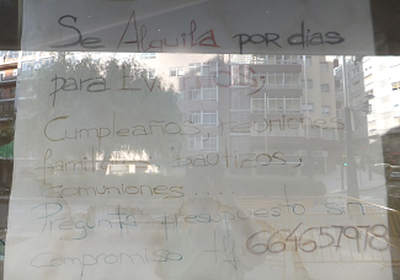 Se Alquila por dias
para
Cumpleaños, reuniones
bautizos,
comuniones.....
presupuesto sin
compromiso Tf 664657978